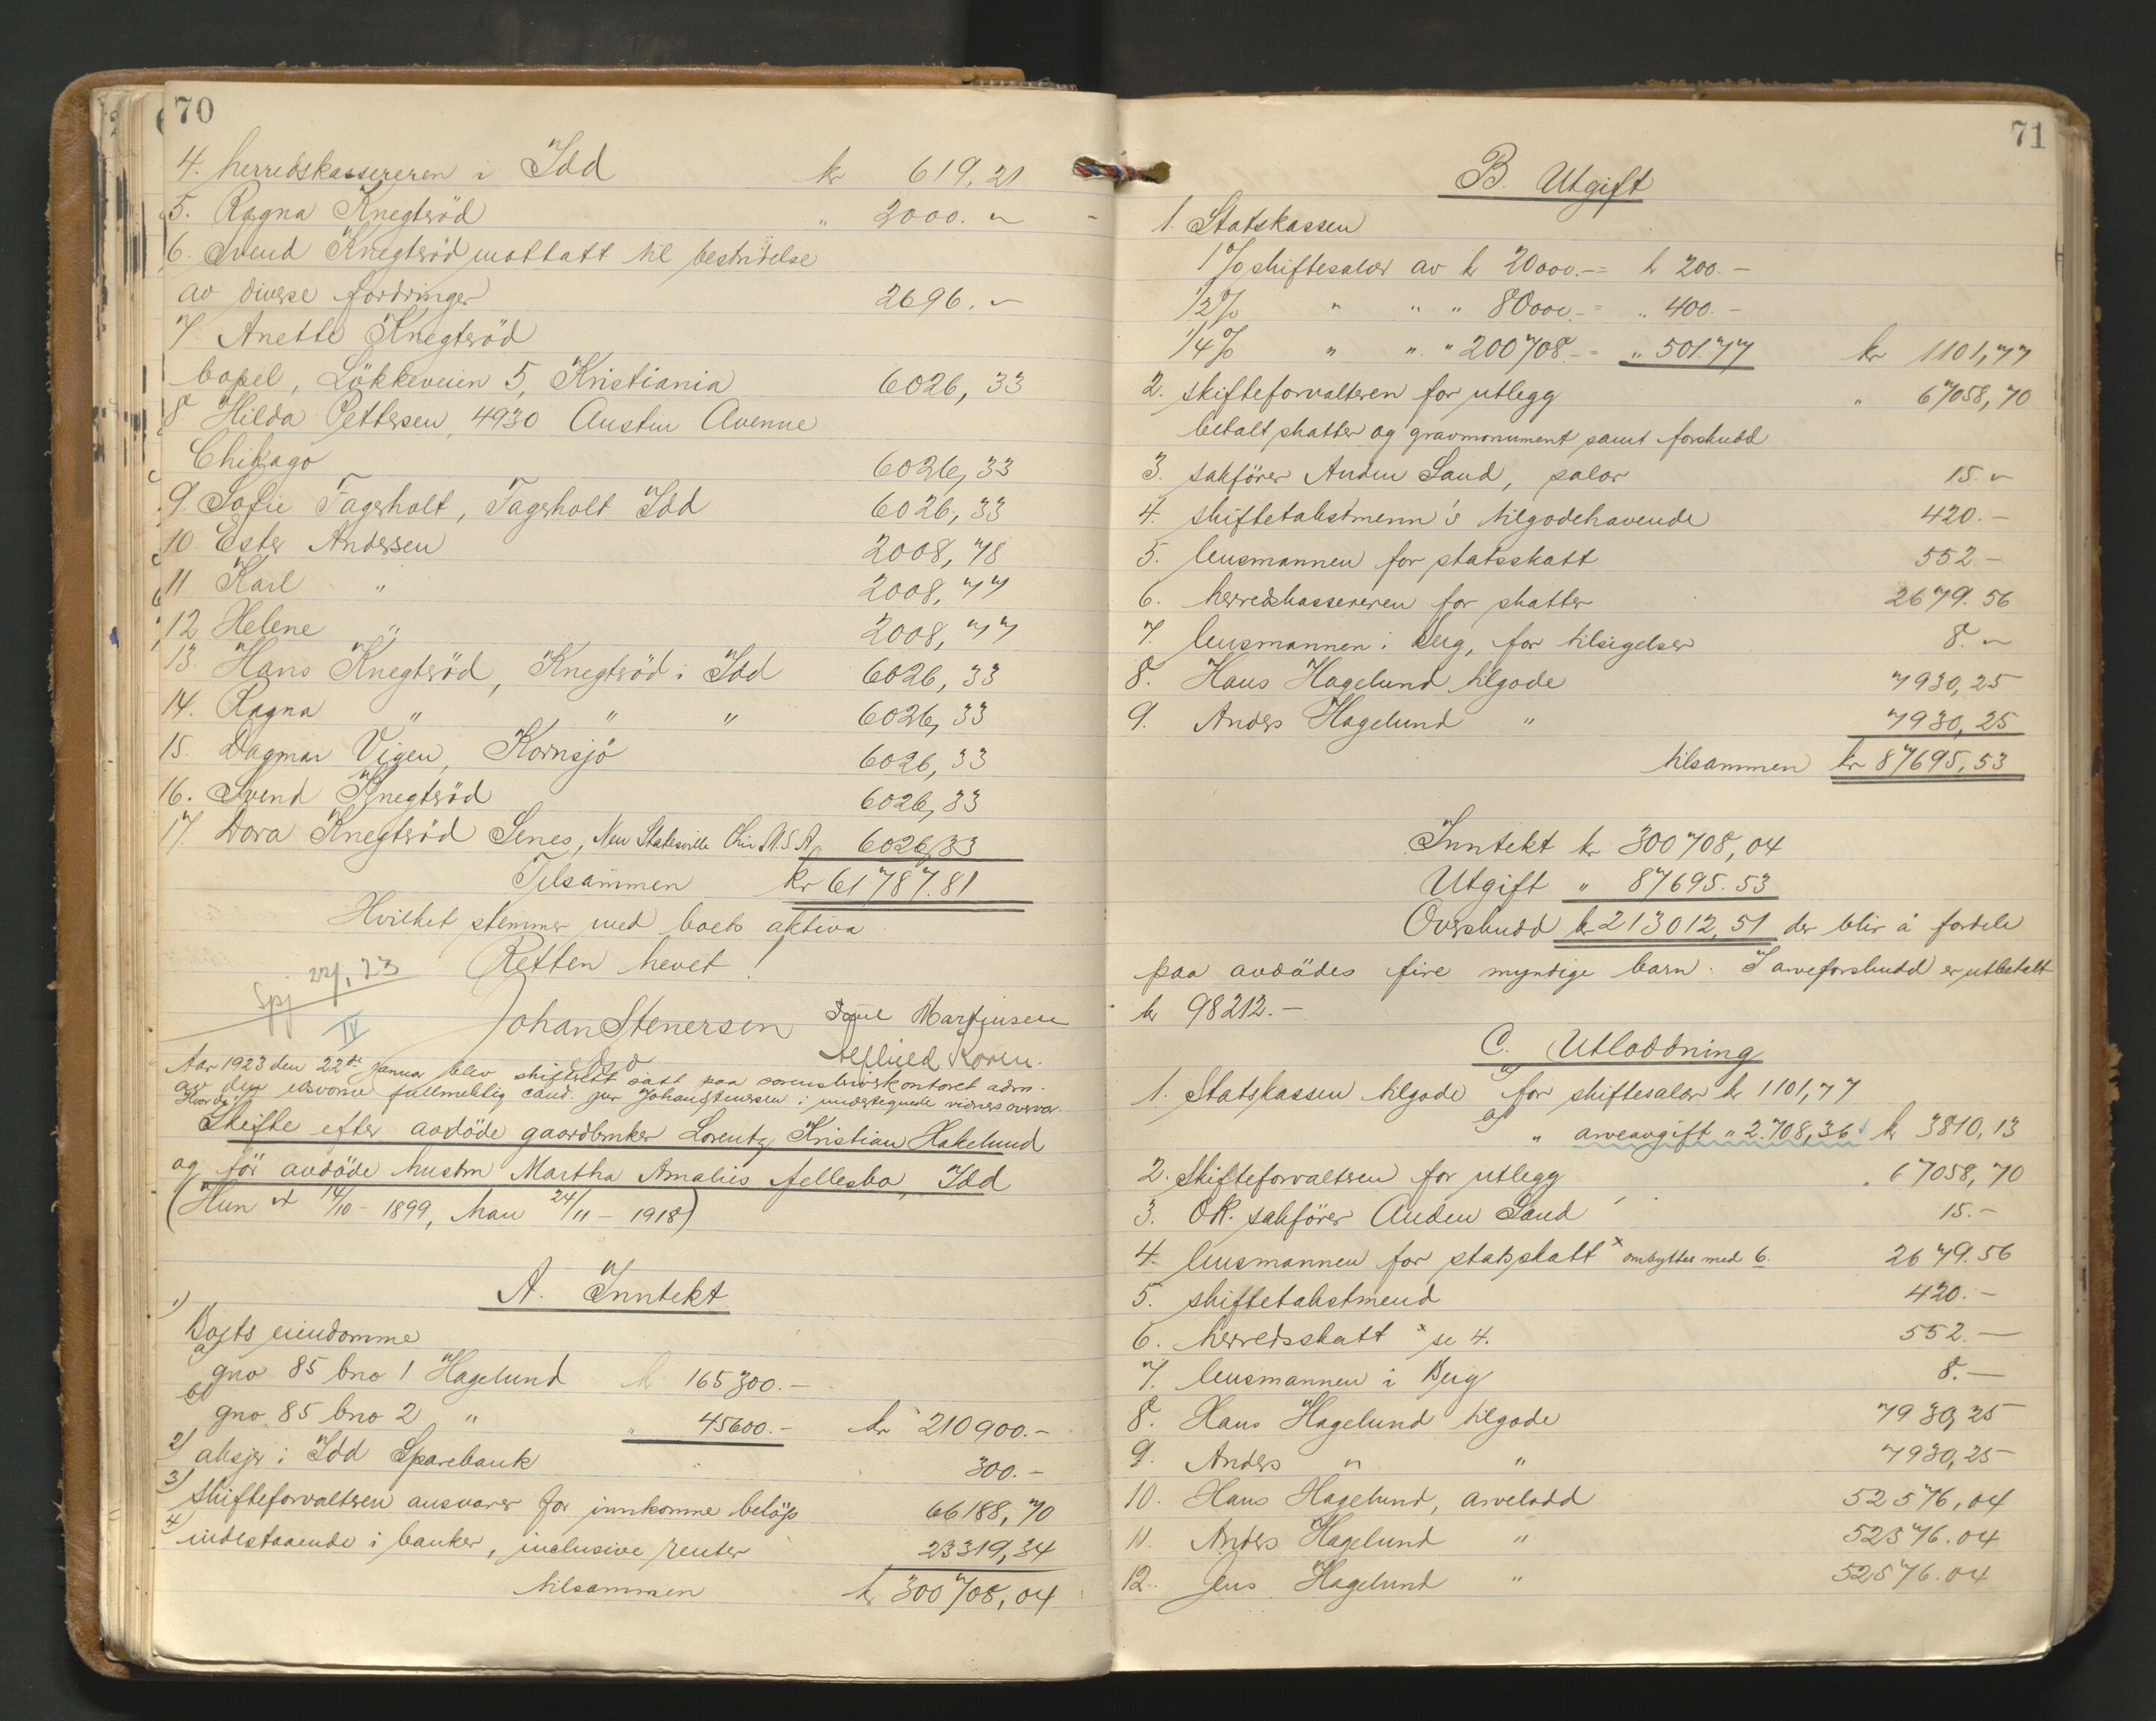 70
4. herredskassereren i Idd kr 619,21
5. Ragna Knegtsröd " 2000. "
6. Svend Knegtsröd mottatt til bestridelse
av diverse fordringer 2696. "
7 Anette Knegtsröd
bopel, Lökkeveien 5, Kristiania 6026,33
8 Hilda Pettersen, 4930 Austin Avenue
Chikago 6026,33
9. Sofie Fagerholt, Fagerholt Idd 6026,33
10. Ester Andersen 2008,78
11. Karl " 2008,77
12 Helene " 2008,77
13. Hans Knegtsröd, Knegtsröd i Idd 6026,33
14. Ragna " " " 6026,33
15. Dagmar Vigen, Kornsjö 6026,33
16. Svend Knegtsröd 6026,33
17. Dora Knegtsröd Senes, New Statesville Ohio U.S.A. 6026,33
Tilsammen kr 61787.81
Hvilket stemmer med boets aktiva.
Retten hevet!
Johan Stenersen
Martinsen
Koren.
Aar 1923 den 22de januar blev skifterett satt paa sorenskriverkontoret adm.
av den edsvorne fullmektig cand. jur Johan Stenersen i undertegnede vidners overvær.
Hvorda:
Skifte efter avdöde gaardbruker Lorentz Kristian Hakelund
og för avdöde hustru Martha Amalies fellesbo, Idd
(Hun d 14/10 - 1899, han 24/11 - 1918)
A. Inntekt
1) Boets eiendomme
a) gno 85 bno 1 Hagelund kr 165300.-
b) gno 85 bno 2 " " 45600.- kr 210900.-
2) aksjer i Idd Sparebank 300.-
3) skifteforvalteren ansvarer for innkomne belöp 66188,70
4) indestaaende i banker, inclusive renter 23319,34
tilsammen kr 300708,04
71
B. Utgift
1. Statskassen
1% skiftesalær av kr 20000.- = kr 200.-
1/2% " " " 80000.- = " 400.-
1/4% " " " 200708.- = " 501.77 kr 1101,77
2. skifteforvalteren for utlegg " 67058,70
betalt skatter og gravmonument samt forskudd
3. sakförer Anden Sand, salær 15. "
4. skiftetakstmenn's tilgodehavende 420.-
5. lensmannen for statsskatt 552.-
6. herredskassereren for skatter 2679.56
7 lensmannen i Berg, for tilsigelser 8. "
8. Hans Hagelund tilgode 7930,25
9. Anders Hagelund " 7930,25
tilsammen kr 87695,53
Inntekt kr 300708,04
Utgift " 87695.53
Overskudd kr 213012,51 der blir å fordele
paa avdödes fire myndige barn. I arveforskudd er utbetalt
kr 98212.-
C. Utloddning
1. Statskassen tilgode a) for skiftesalær kr 1101,77
b) " arveavgift " 2.708,36 kr 3810,13
2. Skifteforvalteren for utlegg " 67058,70
3. OR. sakförer Anden Sand 15.-
4. lensmannen for statsskatt x ombyttes med 6. 2679.56
5. skiftetakstmend 420.-
6. herredsskatt x se 4. 552.-
7. lensmannen i Berg 8.-
8. Hans Hagelund tilgode 7930,25
9. Anders " " 7930,25
10. Hans Hagelund, arvelodd 52576,04
11. Anders Hagelund " 52576.04
12. Jens Hagelund " 52576.04